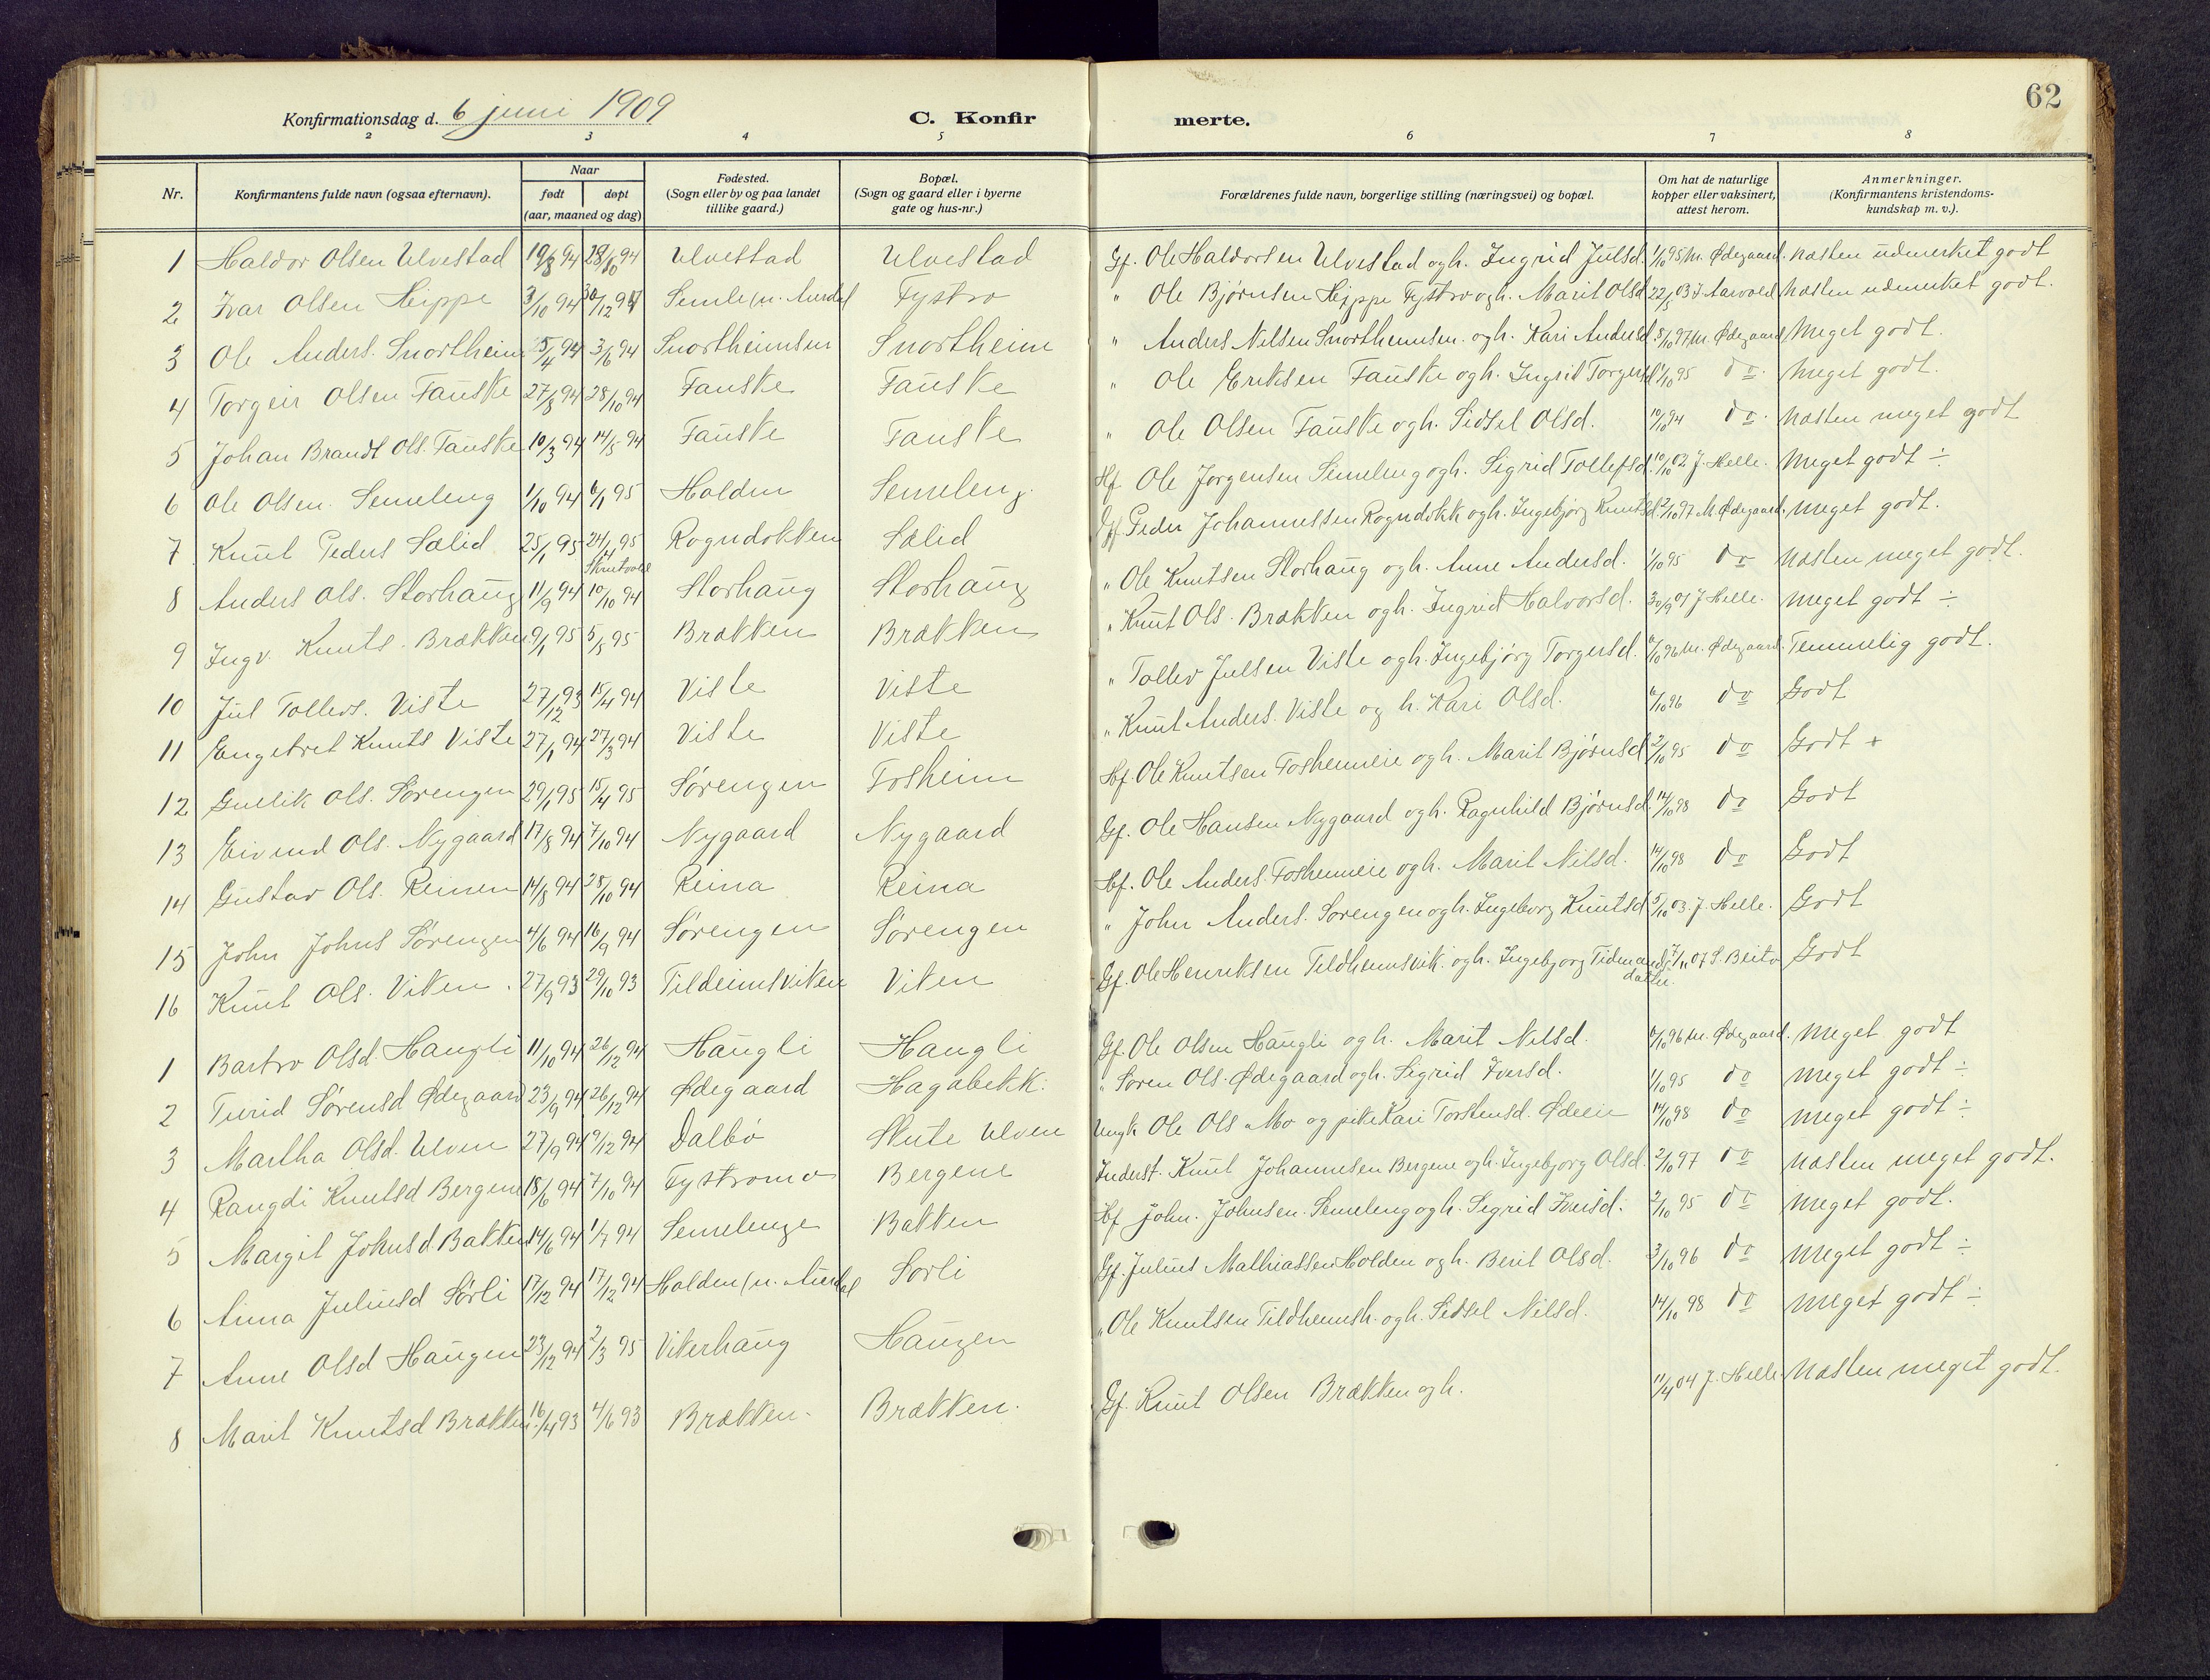 62
Konfirmationsdag d. 6 juni 1909 C. Konfir merte.
2 3 4 5 6 7 8
Nr. Konfirmantens fulde navn (ogsaa efternavn). Naar født døpt (aar, maaned og dag) Fødested. (Sogn eller by og paa landet tillike gaard.) Bopæl. (Sogn og gaard eller i byerne gate og hus-nr.) Forældrenes fulde navn, borgerlige stilling (næringsvei) og bopæl. Om hat de naturlige kopper eller vaksinert, attest herom. Anmerkninger. (Konfirmantens kristendoms-kundskap m. v.).
1 Haldor Olsen Ulvestad 19/8 94 28/10 94 Ulvestad Ulvestad Gf. Ole Haldorsen Ulvestad og h. Ingrid Julsd. 1/10 95 M. Ødegaard. næsten udmerket godt
2 Ivar Olsen Hippe 3/10 94 30/12 94 Semle (n. Aurdal Fystro " Ole Bjørnsen Hippe Fystro og h. Marit Olsd 22/5 03 J. Aarvold næsten udmerket godt.
3 Ole Anders. Snortheim 5/4 94 3/6 94 Snortheimsen Snortheim " Anders Nilsen Snortheimsen. og h. Kari Andersd 5/10 97 M. Ødegaard Meget godt.
4 Torgeir Olsen Fauske 27/8 94 28/10 94 Fauske Fauske " Ole Eriksen Fauske og h. Ingrid Torgersd 1/10 95 do. Meget godt.
5 Johan Brandt Ols. Fauske 10/3 94 14/5 94 Fauske Fauske " Ole Olsen Fauske og h. Sidsel Olsd. 10/10 94 do. næsten meget godt
6 Ole Olsen Semeleng 1/10 94 6/1 95 Holden Semeleng. Hf. Ole Jørgensen Semeleng og h. Sigrid Tollefsd. 10/10 02 J. Helle. Meget godt ÷
7 Knut Peders Sælid 25/1 95 24/4 95 Skrutvold Rogndokken Sælid Gf. Peder Johannessen Rogndokk og h. Ingebjørg Knutsd. 2/10 97 M. Ødegaard. Meget godt.
8 Anders Ols. Storhaug 11/9 94 10/10 94 Storhaug Storhaug " Ole Knutsen Storhaug og h. Anne Andersd. 1/10 95 do næsten meget godt.
9 Ingv. Knuts. Brækken 9/1 95 5/5 95 Brækken Brækken " Knut Ols. Brækken og h. Ingrid Halvorsd. 30/9 01 J. Helle. meget godt ÷
10 Jul Tollevs. Viste 27/12 93 15/4 94 Viste Viste " Tollev Julsen Viste og h. Ingebjørg Torgersd. 6/10 96 M. Ødegaard. Temmelig godt.
11 Engebret Knuts Viste 27/1 94 27/3 94 Viste Viste " Knut Anders. Viste og h. Kari Olsd. 6/10 96 do Godt
12 Gullik Ols. Sørengen 29/1 95 15/4 95 Sørengen Fosheim Hf. Ole Knutsen Foshemeie og h. Marit Bjørnsd 2/10 95 do Godt +
13 Eivind Ols. Nygaard 17/8 94 7/10 94 Nygaard Nygaard Gf. Ole Hansen Nygaard og h. Ragnhild Bjørnsd. 14/10 98 do Godt
14 Gustav Ols. Reinen 14/8 94 28/10 94 Reina Reina Hf. Ole Anders. Foshemeie og h. Marit Nilsd. 14/10 98 do Godt
15 John Johns Sørengen 4/6 94 16/9 94 Sørengen Sørengen " John Anders. Sørengen og h. Ingeborg Knutsd 5/10 03. J. Helle. Godt
16 Knut Ols. Viken. 27/9 93 29/10 93 Tildeimsviken Viken Gf. Ole Henriksen Tildhemsvik. og h. Ingebjørg Tidemands datter. 7/11 07 S. Beito Godt
1 Bartro Olsd Haugli 11/10 94 26/12 94 Haugli Haugli Gf. Ole Olsen Haugli og h. Marit Nilsd. 6/10 96 M. Ødegaard. Meget godt
2 Turid Sørensd Ødegaard 23/9 94 26/12 94 Ødegaard Hagabekk. " Søren Ols. Ødegaard og h. Sigrid Iversd. 1/10 95 do meget godt ÷
3 Martha Olsd. Ulven 27/9 94 9/12 94 Dalbø Slute Ulven Ungk Ole Ols Mo og pike Kari Torstensd. Ødeeie 14/10 98 do meget godt ÷
4 Rangdi Knutsd Bergene 18/6 94 7/10 94 Fystromo Bergene Inderst. Knut Johannesen Bergene og h. Ingebjørg Olsd. 2/10 97 do næsten meget godt.
5 Margit Johnsd Bakken 14/6 94 1/7 94 Semelenge Bakken Hf. John. Johnsen. Semeleng og h. Sigrid Iversd. 2/10 95 do meget godt.
6 Anna Juliusd Sørli 17/12 94 17/12 94 Holden (n. Aurdal Sørli Gf. Julius Mathiassen Holden og h. Berit Olsd. 3/10 96 do meget godt ÷
7 Anne Olsd Haugen 23/12 94 2/3 95 Vikerhaug Haugen " Ole Knutsen Tildhemsh. og h. Sidsel Nilsd. 14/10 98 do meget godt ÷
8 Marit Knutsd Brækken. 16/4 93 4/6 93 Brækken. Brækken. Gf. Knut Olsen Brækken og h. 11/4 04 J. Helle næsten meget godt.